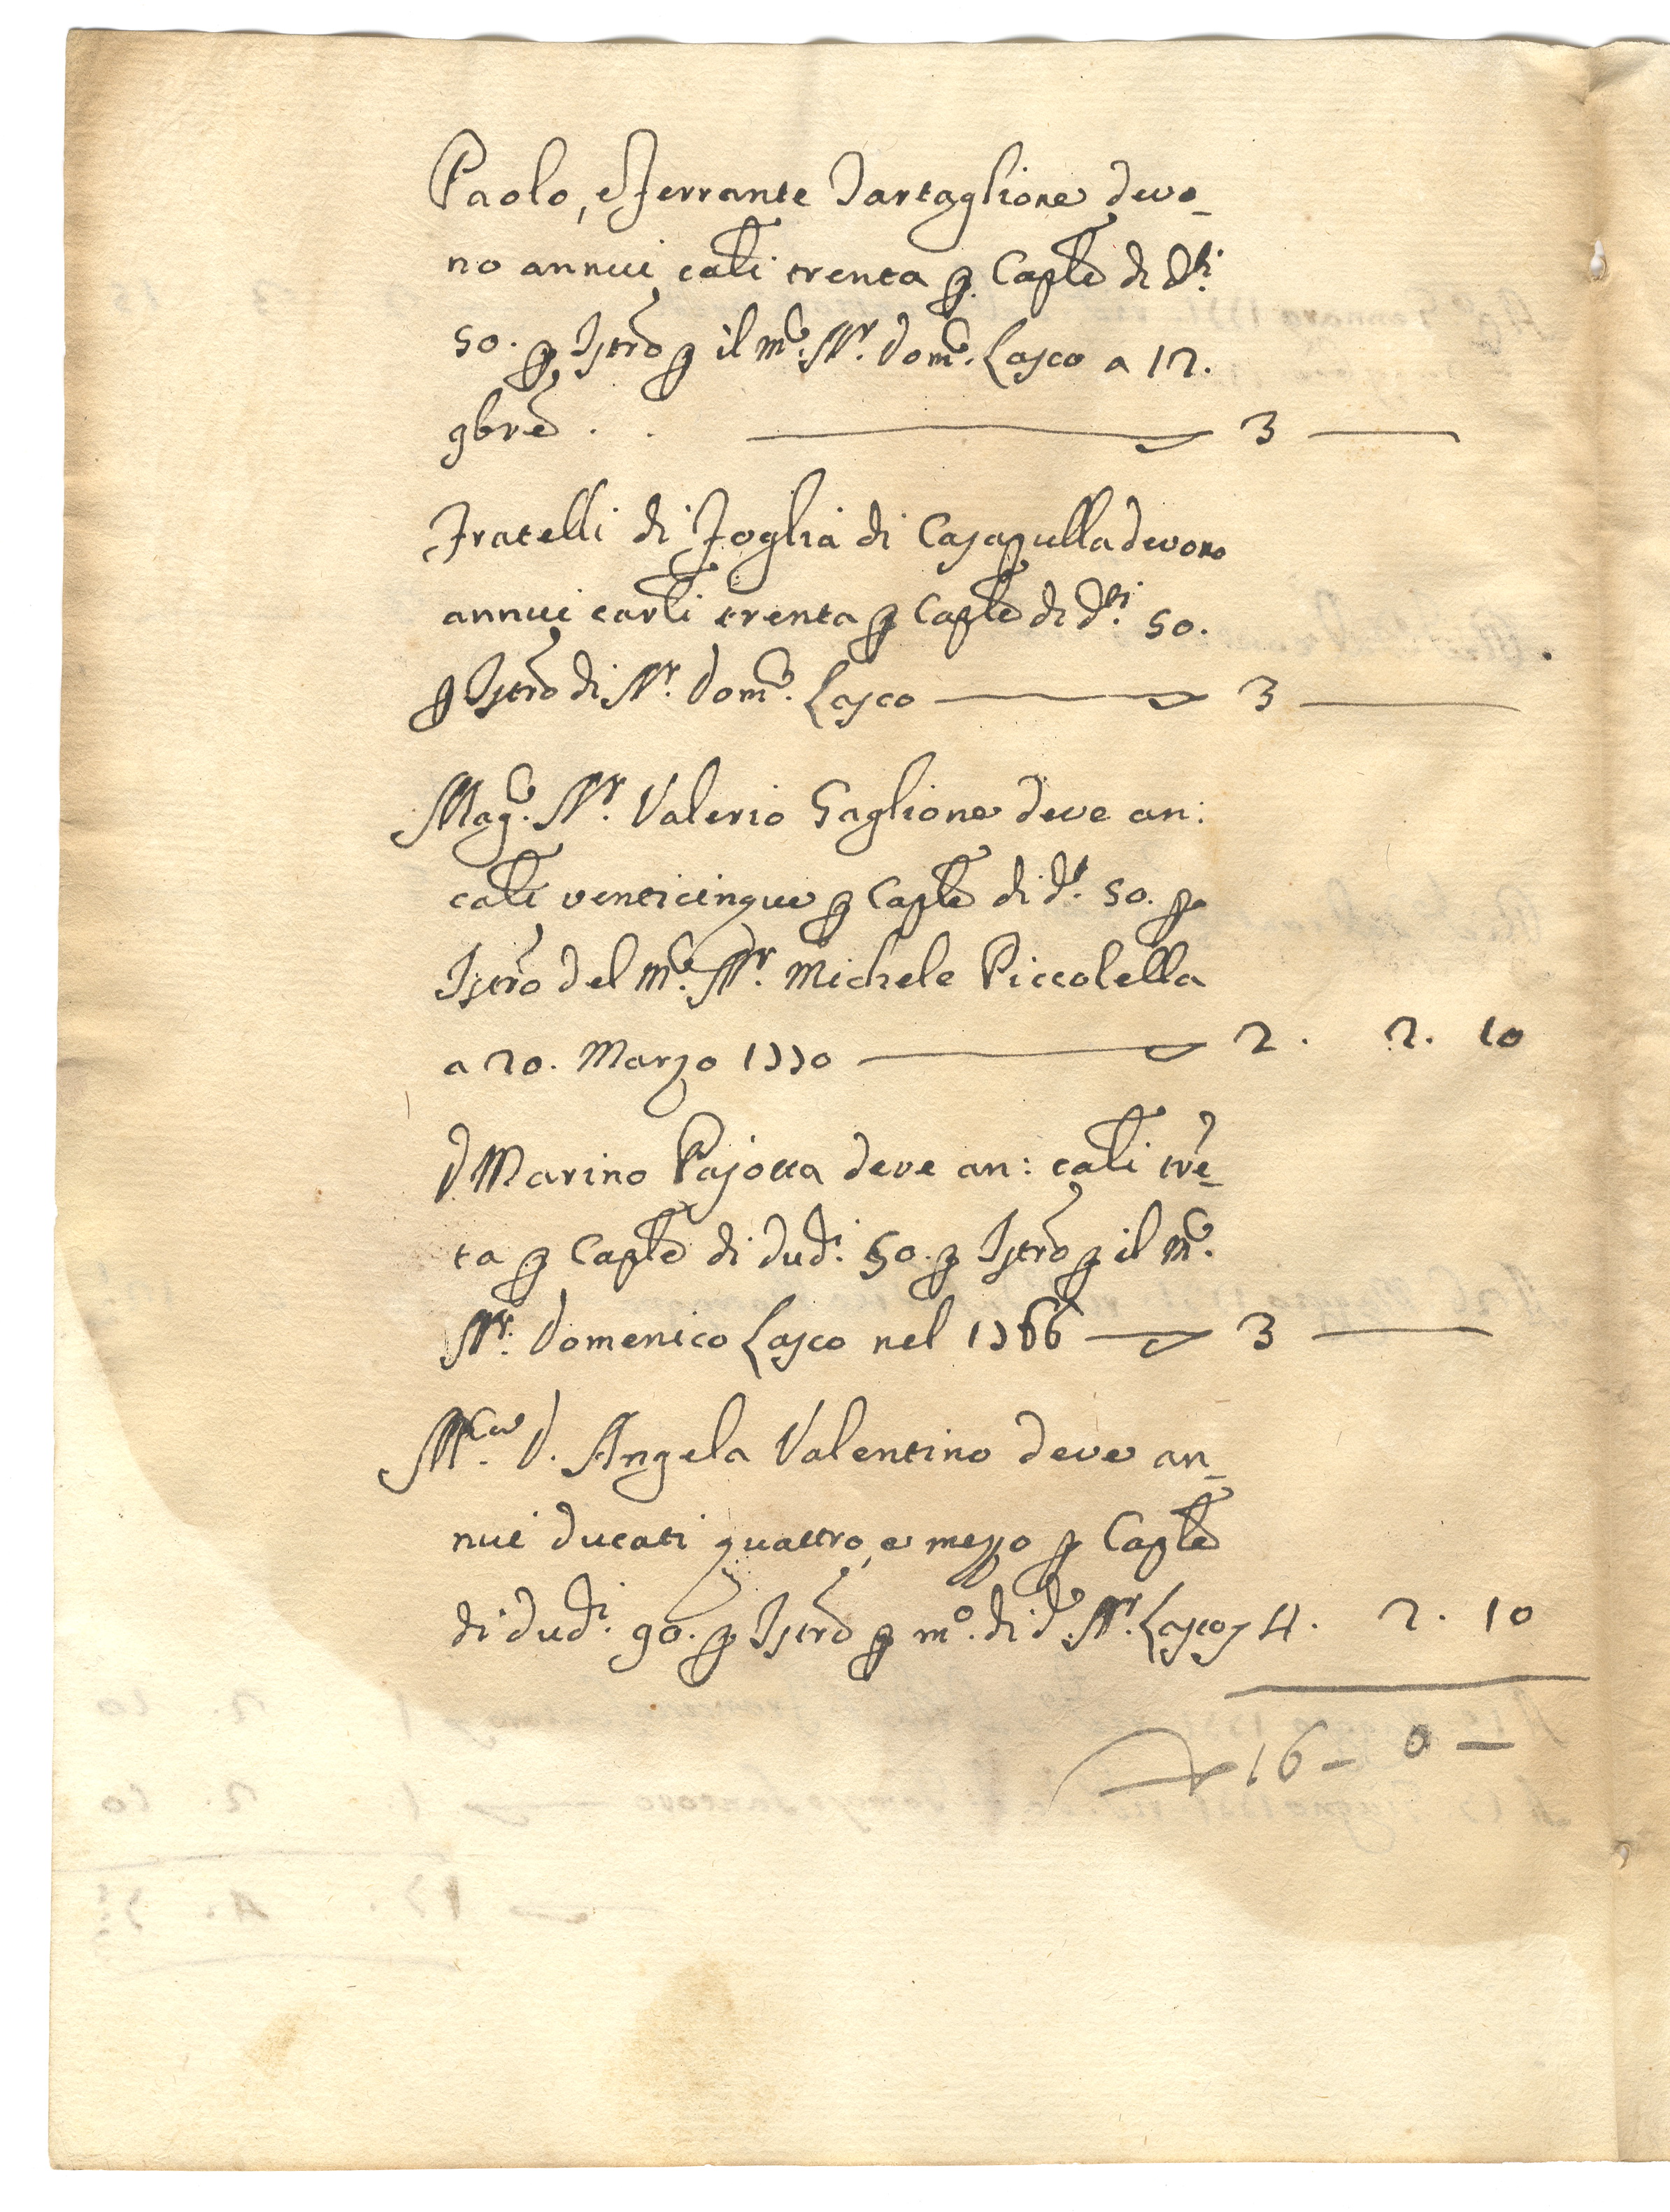 Paolo, e Ferrante Tartaglione devo_
no annui cali trenta p. Caple di dti
50. p Istro p il mco. Nr. Domco. Lasco a 12.
9bre . . 3
Fratelli di Foglia di Casapulla devono
annui carli trenta p Caple di dti 50.
p Istro di Nr. Domco. Lasco 3
Magco. Nr. Valerio Gaglione deve an:
cali venticinque p Caple di dti. 50. p
Istro del mco. Nr. Michele Piccolella
a 20. Marzo 1770 2. 2. 10
D Marino Pajotta deve an: cali tre_
ta p Caple di dudi. 50. p Istro p il mco.
Nr. Domenico Lasco nel 1766 3
Mca. D. Angela Valentino deve an_
nui ducati quattro, e mezzo p Caple
di dudi. 90. p Istro p mo. di do. Nr. Lasco 4. 2. 10
16 - 0 -